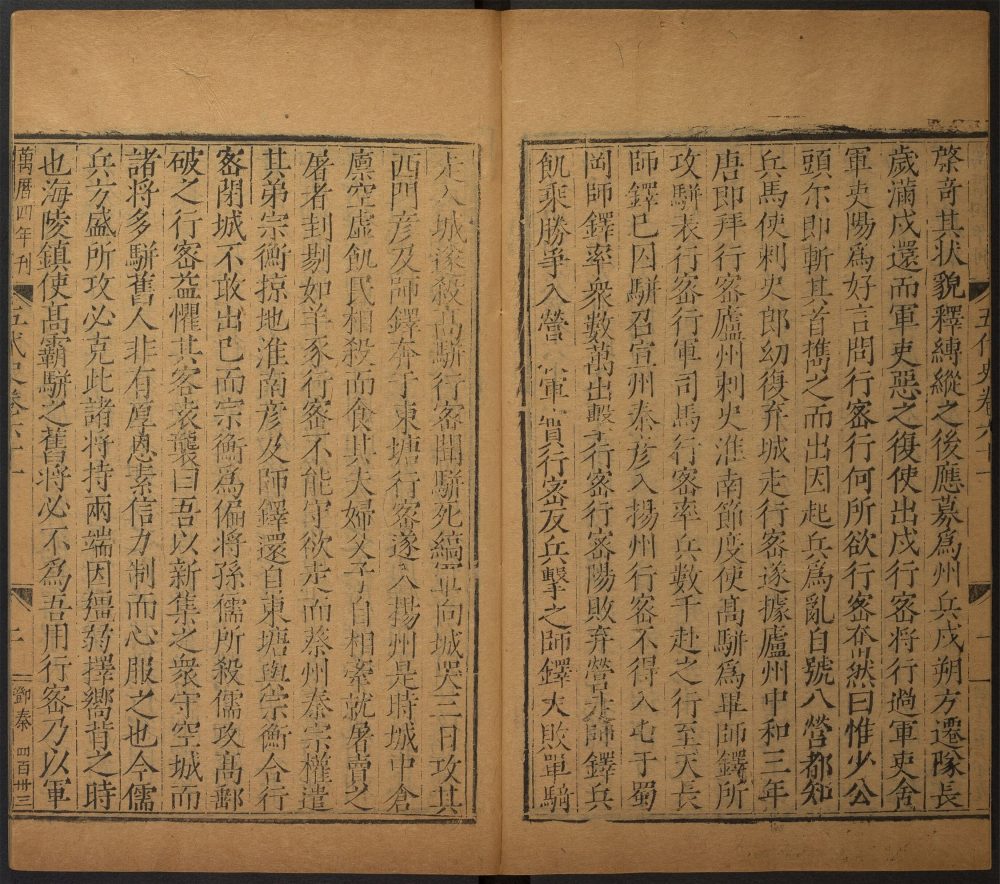 五代史卷六十一
棨奇其状貌釋縛縱之後應募爲州兵戍朔方遷隊長
歲滿戍還而軍吏惡之復使出戍行密將行過軍吏舍
軍吏陽爲好言問行密行何所欲行密奮然曰惟少公
頭尔即斬其首攜之而出因起兵爲亂自號八營都知
兵馬使刺史郎幼復弃城走行密遂據廬州中和三年
唐即拜行密廬州刺史淮南節度使髙駢爲畢師鐸所
攻駢表行密行軍司馬行密率兵數千赴之行至天長
師鐸已囚駢召宣州秦彦入揚州行密不得入屯于蜀
岡師鐸率衆數萬出擊行密行密陽敗弃營走師鐸兵
飢乘勝爭入營軍實行密反兵擊之師鐸大敗單騎
走入城遂殺髙駢行密聞駢死縞軍向城哭三日攻其
西門彦及師鐸奔于東塘行密遂入揚州是時城中倉
廩空虚飢民相殺而食其夫婦父子自相牽就屠賣之
屠者刲剔如羊豕行密不能守欲走而蔡州秦宗權遣
其弟宗衡掠地淮南彦及師鐸還自東塘與宗衡合行
密閉城不敢出已而宗衡爲偏將孫儒所殺儒攻髙郵
破之行密益懼其客袁襲曰吾以新集之衆守空城而
諸將多駢舊人非有厚恩素信力制而心服之也今儒
兵方盛所攻必克此諸將持兩端因彊弱擇嚮背之時
也海陵鎮使髙霸駢之舊將必不爲吾用行密乃以軍
萬曆四年刊
五代史卷六十一
鄧秦 四百卅三